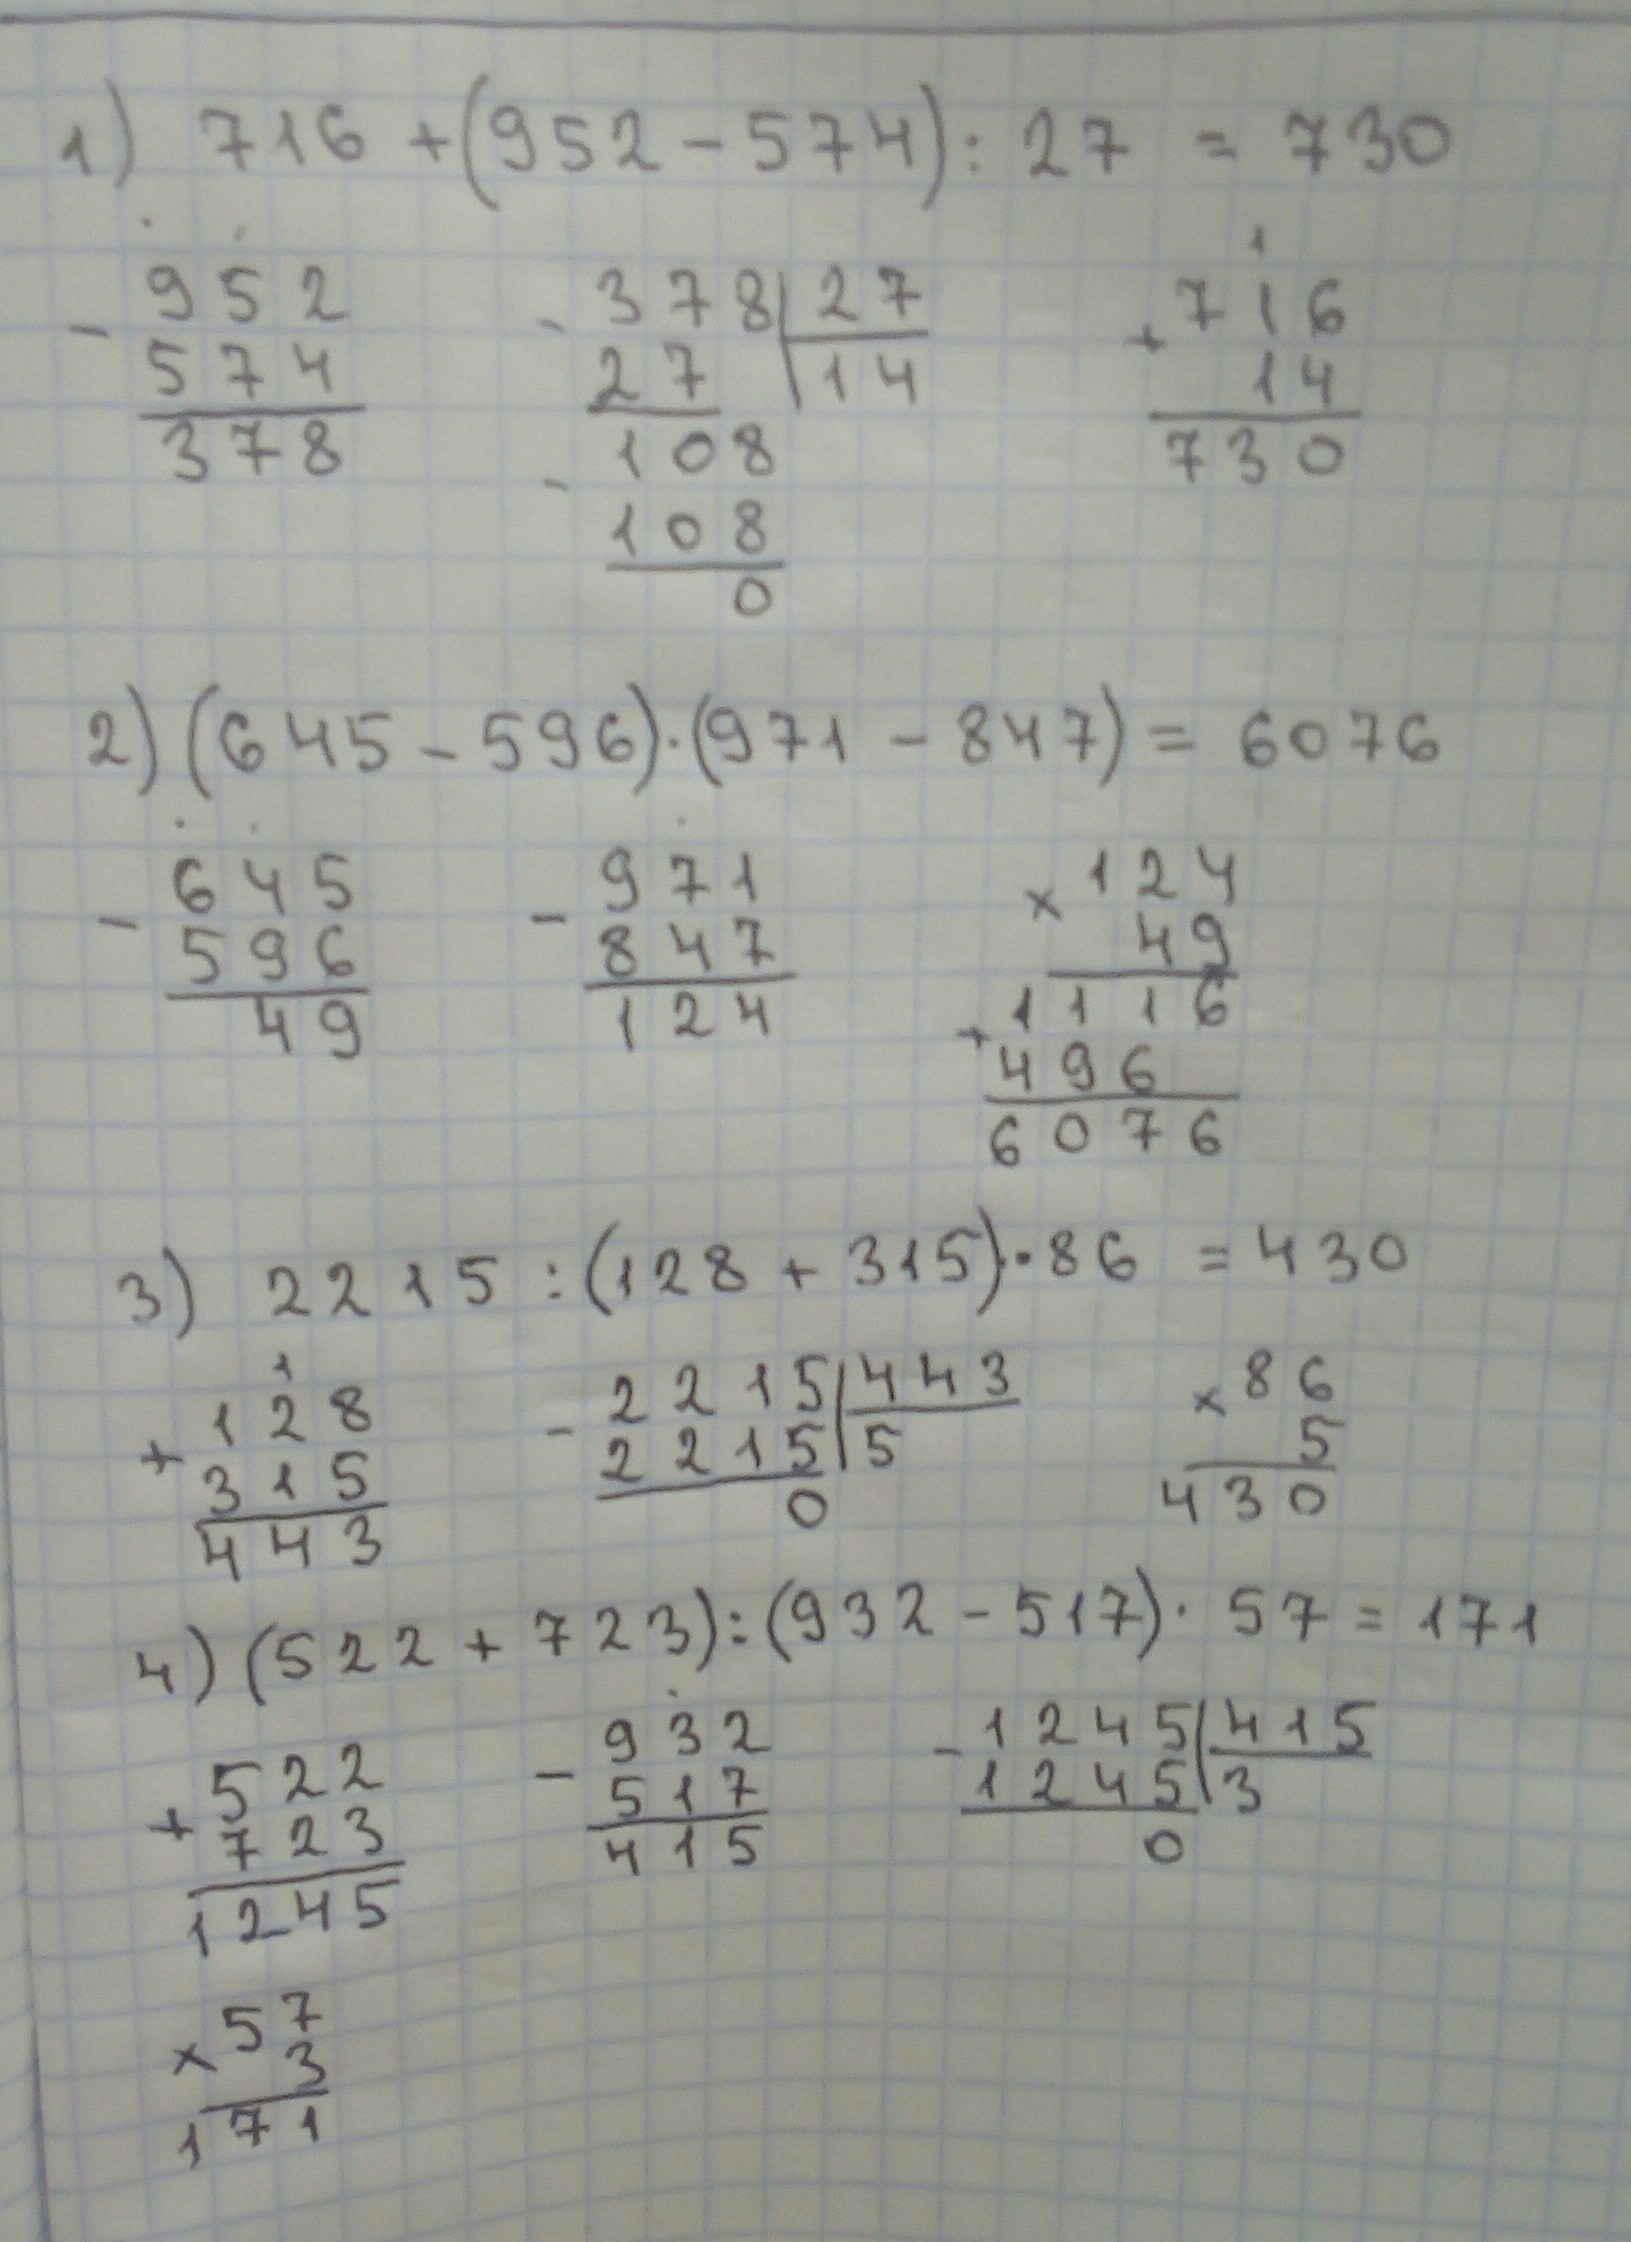 1) 716 + (952 - 574) : 27 = 730
- 952
574
378
- 378 | 27
27 | 14
- 108
108
0
1
+ 716
14
730
2) (645 - 596) · (971 - 847) = 6076
- 645
596
49
- 971
847
124
× 124
49
+ 1116
496
6076
3) 2215 : (128 + 315) · 86 = 430
1
+ 128
315
443
- 2215 | 443
2215 | 5
0
× 86
5
430
4) (522 + 723) : (932 - 517) · 57 = 171
+ 522
723
1245
- 932
517
415
- 1245 | 415
1245 | 3
0
× 57
3
171